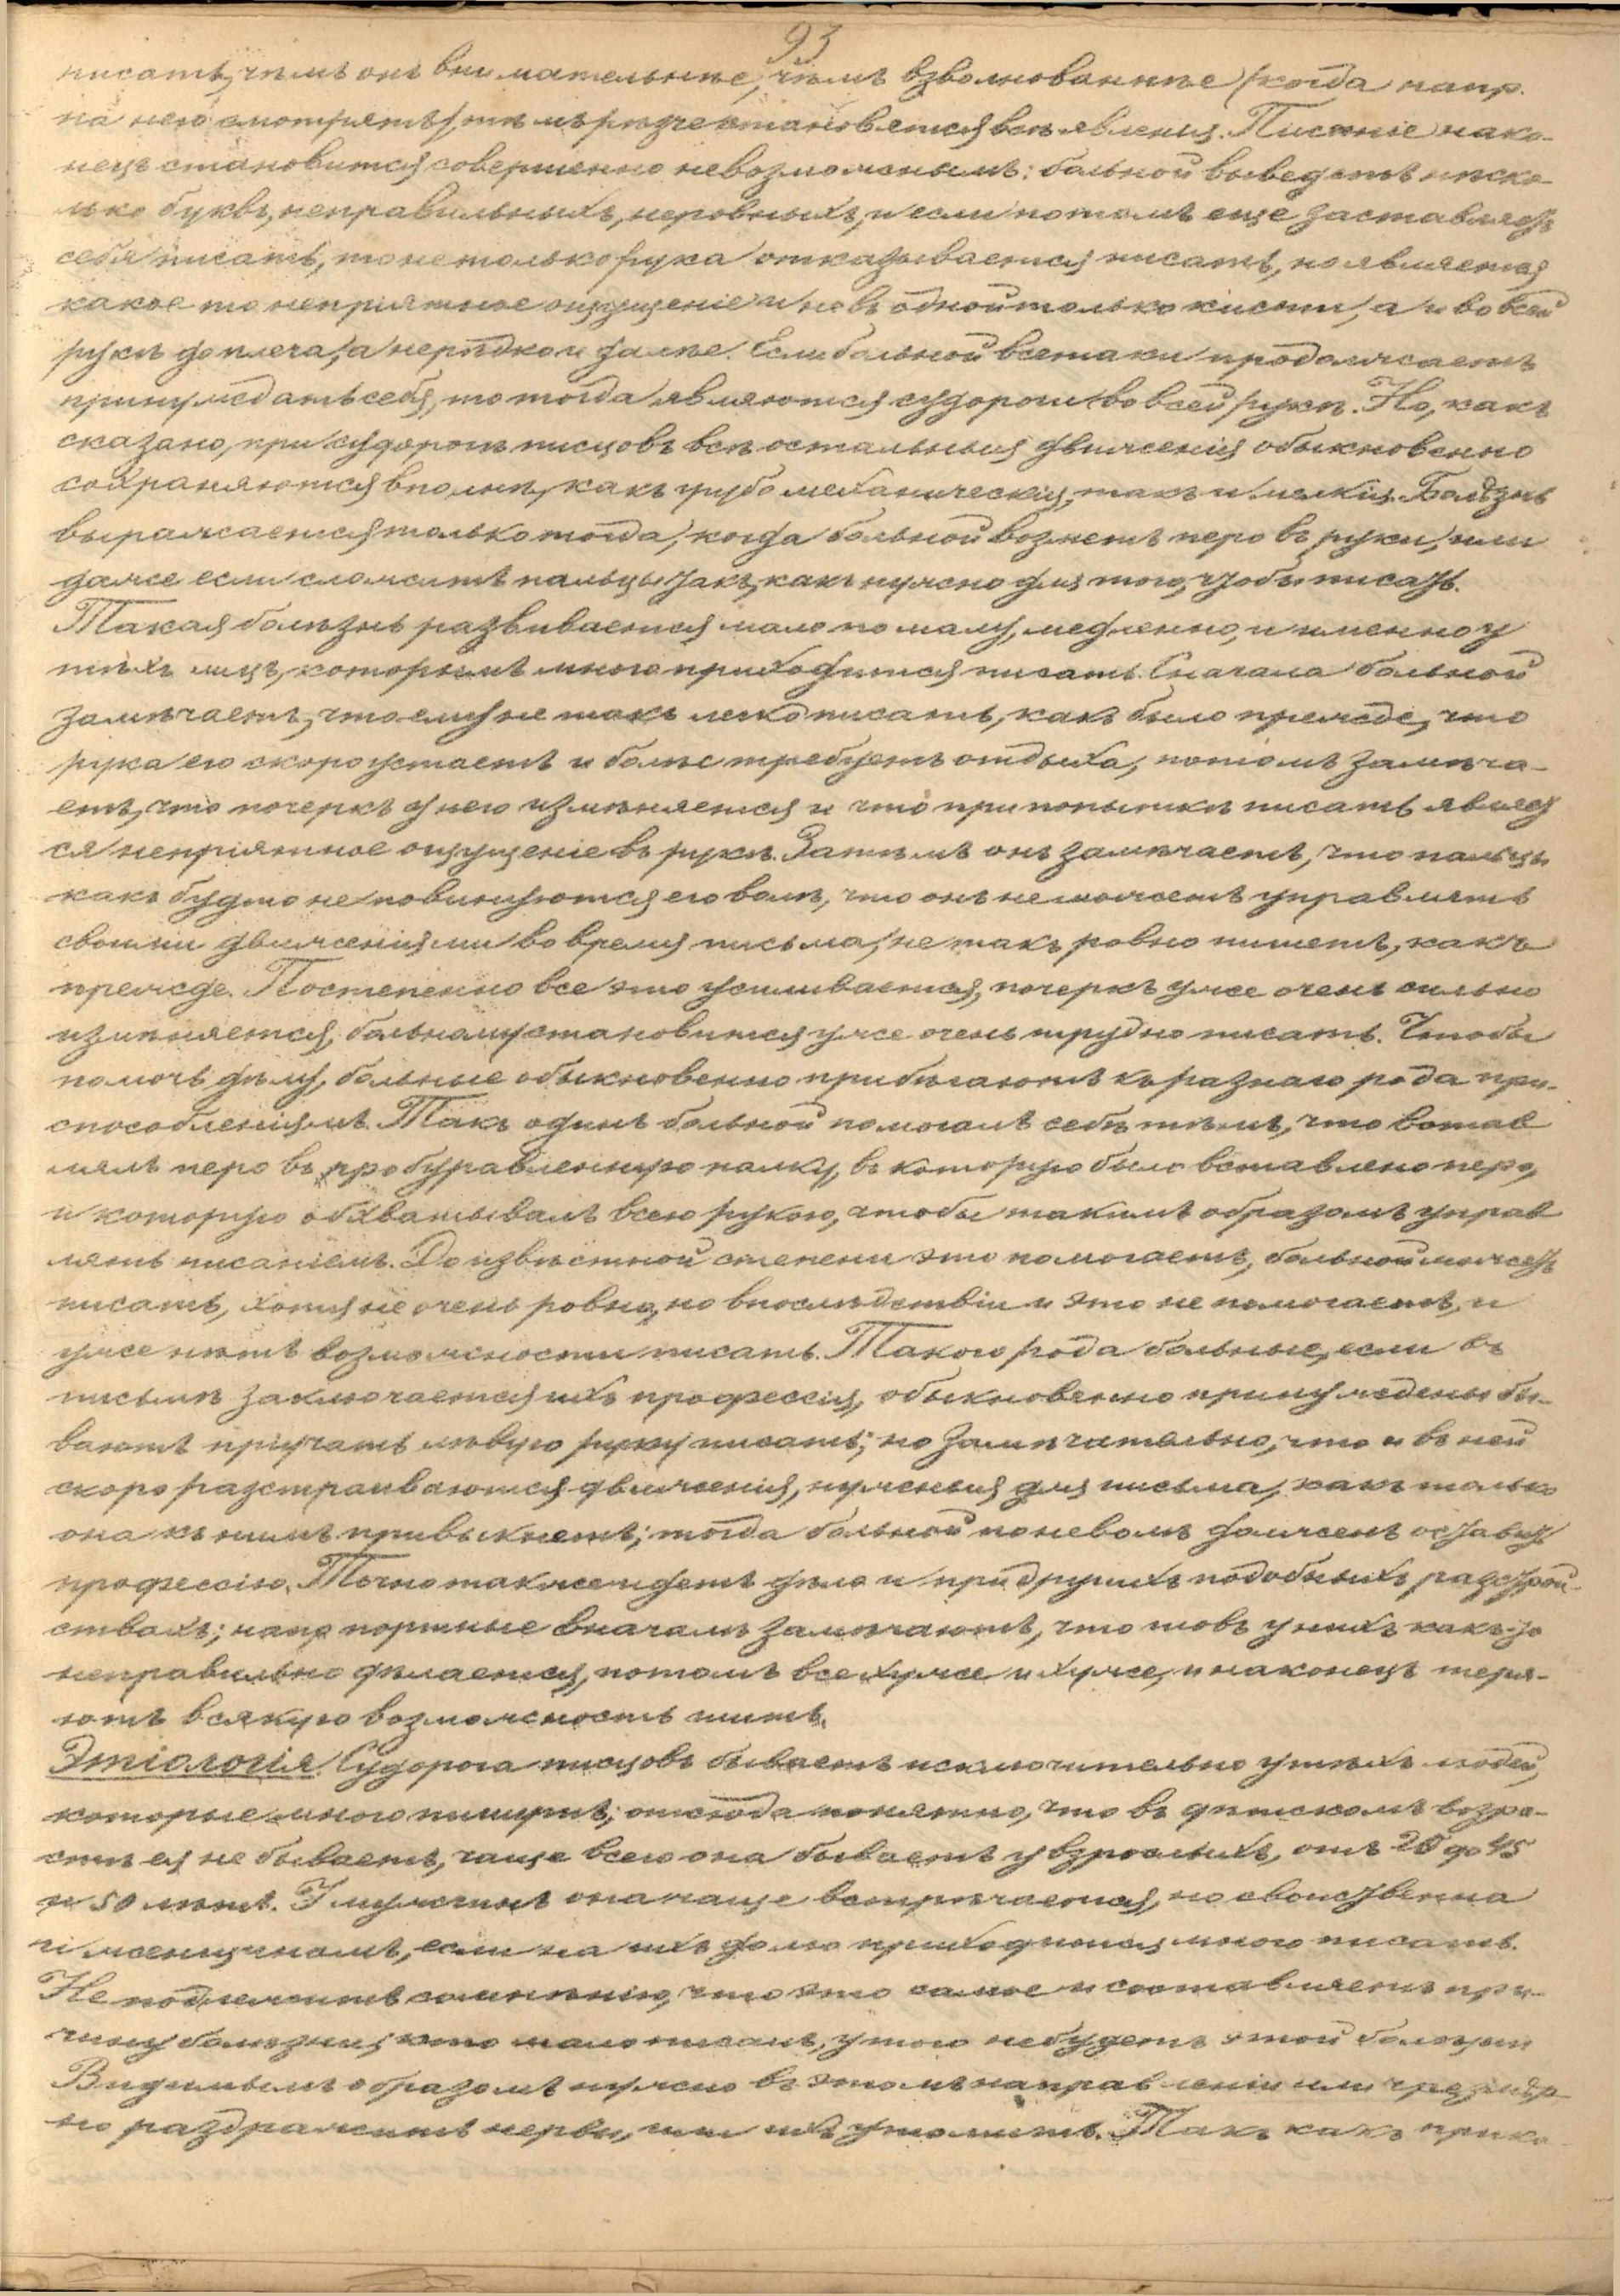 93
писать, чѣмъ онъ внимательнѣе, чѣмъ взволнованнѣе (когда напр.
на него смотрятъ), тѣмъ рѣзче становятся всѣ явленія. Писаніе нако-
нецъ становится совершенно невозможнымъ: больной выведетъ нѣско-
лько буквъ, неправильныхъ, неровныхъ, и если потомъ еще заставляетъ
себя писать, то не только рука отказывается писать, но является
какое то непріятное ощущеніе и не въ одной только кисти, а и во всей
рукѣ до плеча, а нерѣдко и далѣе. Если больной всетаки продолжаетъ
принуждать себя, то тогда являются судороги во всей рукѣ. Но, какъ
сказано, при судорогѣ писцовъ всѣ остальныя движенія обыкновенно
сохраняются вполнѣ, какъ грубо механическія, такъ и мелкія. Болѣзнь
выражается только тогда, когда больной возметъ перо въ руки, или
даже если сложитъ пальцы такъ, какъ нужно для того, чтобы писать.
Такая болѣзнь развивается мало по малу, медленно, и именно у
тѣхъ лицъ, которымъ много приходится писать. Сначала больной
замѣчаетъ, что ему не такъ легко писать, какъ было прежде, что
рука его скоро устаетъ и болѣе требуетъ отдыха, потомъ замѣча-
етъ, что почеркъ у него измѣняется и что при попыткѣ писать являет
ся непріятное ощущеніе въ рукѣ. Затѣмъ онъ замѣчаетъ, что пальцы
какъ будто не повинуются его волѣ, что онъ не можетъ управлять
своими движеніями во время письма, не такъ ровно пишетъ, какъ
прежде. Постепенно все это усиливается, почеркъ уже очень сильно
измѣняется, больному становится уже очень трудно писать. Чтобы
помочь дѣлу, больные обыкновенно прибѣгаютъ къ разнаго рода при-
способленіямъ. Такъ одинъ больной помогалъ себѣ тѣмъ, что встав
лялъ перо въ пробуравленную палку, въ которую было вставлено перо,
и которую обхватывалъ всею рукою, чтобы такимъ образомъ управ
лять писаніемъ. До извѣстной степени это помогаетъ, больной можетъ
писать, хотя не очень ровно, но впослѣдствіи и это не помогаетъ, и
уже нѣтъ возможности писать. Такого рода больные, если въ
письмѣ заключается ихъ профессія, обыкновенно принуждены бы-
ваютъ пріучать лѣвую руку писать; но замѣчательно, что и въ ней
скоро разстраиваются движенія, нужныя для письма, какъ только
она къ нимъ привыкнетъ; тогда больной поневолѣ долженъ оставить
профессію. Точно также идетъ дѣло и при другихъ подобныхъ разстрой-
ствахъ; напр портные вначалѣ замѣчаютъ, что шовъ у нихъ какъ-то
неправильно дѣлается, потомъ все хуже и хуже, и наконецъ теря-
ютъ всякую возможность шить.
Этіологія. Судорога писцовъ бываетъ исключительно у тѣхъ людей,
которые много пишутъ; отсюда понятно, что въ дѣтскомъ возра-
стѣ ея не бываетъ, чаще всего она бываетъ у взрослыхъ, отъ 20 до 45
и 50 лѣтъ. У мужчинъ она чаще встрѣчается, но свойственна
и женщинамъ, если на ихъ долю приходится много писать.
Не подлежитъ сомнѣнію, что это самое и составляетъ при-
чину болѣзни; кто мало писалъ, у того не будетъ этой болѣзни
Видимымъ образомъ нужно въ этомъ направленіи или чрезмѣр-
но раздражить нервы, или ихъ утомить. Такъ какъ